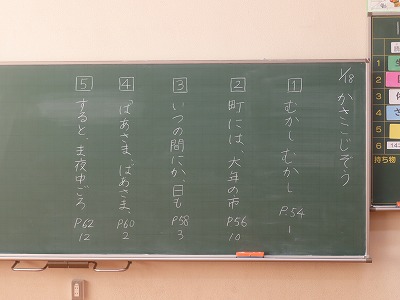 1/18 かさこじぞう
1 むかしむかし P.54 1
2 町には、大年の市 P56 10
3 いつの間にか、日も P58 3
4 ばあさま、ばあさま、 P60 2
5 すると、ま夜中ごろ P62 12
1
2
3
4
5
6
持ち物